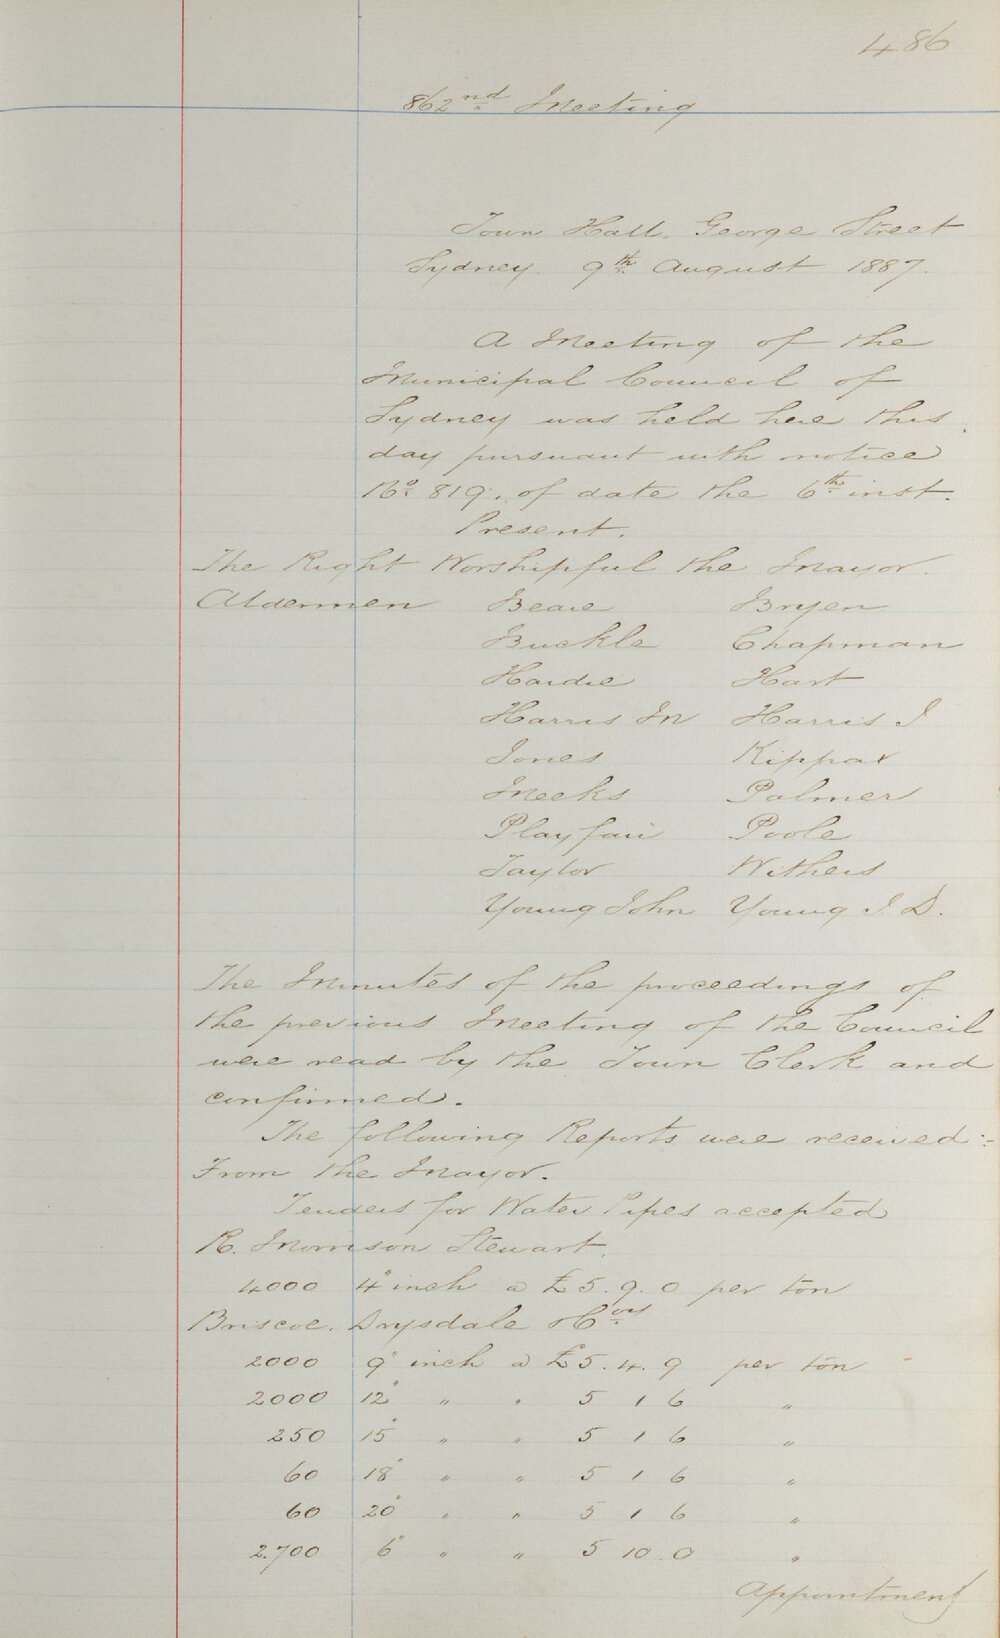 486
862nd Meeting
Town Hall. George Street
Sydney. 9th August 1887.
A Meeting of the
Municipal Council of
Sydney was held here this
day pursuant with notice
No. 819, of date the 6th inst.
Present.
The Right Worshipful the Mayor.
Aldermen Beare Bryen
Buckle Chapman
Hardie Hart
Harris M Harris J
Jones Kippax
Meeks Palmer
Playfair Poole
Taylor Withers
Young John Young J. D.
The Minutes of the proceedings of
the previous Meeting of the Council
were read by the Town Clerk and
confirmed.
The following Reports were received:-
From the Mayor.
Tenders for Water Pipes accepted
R. Morrison Stewart.
4000 4" inch a £5.9.0 per ton
Briscoe. Drysdale & Coy
2000 9" inch a £5.4.9 per ton
2000 12" " " 5 1 6 "
250 15" " " 5 1 6 "
60 18" " " 5 1 6 "
60 20" " " 5 1 6 "
2.700 6" " " 5 10.0 "
Appointment